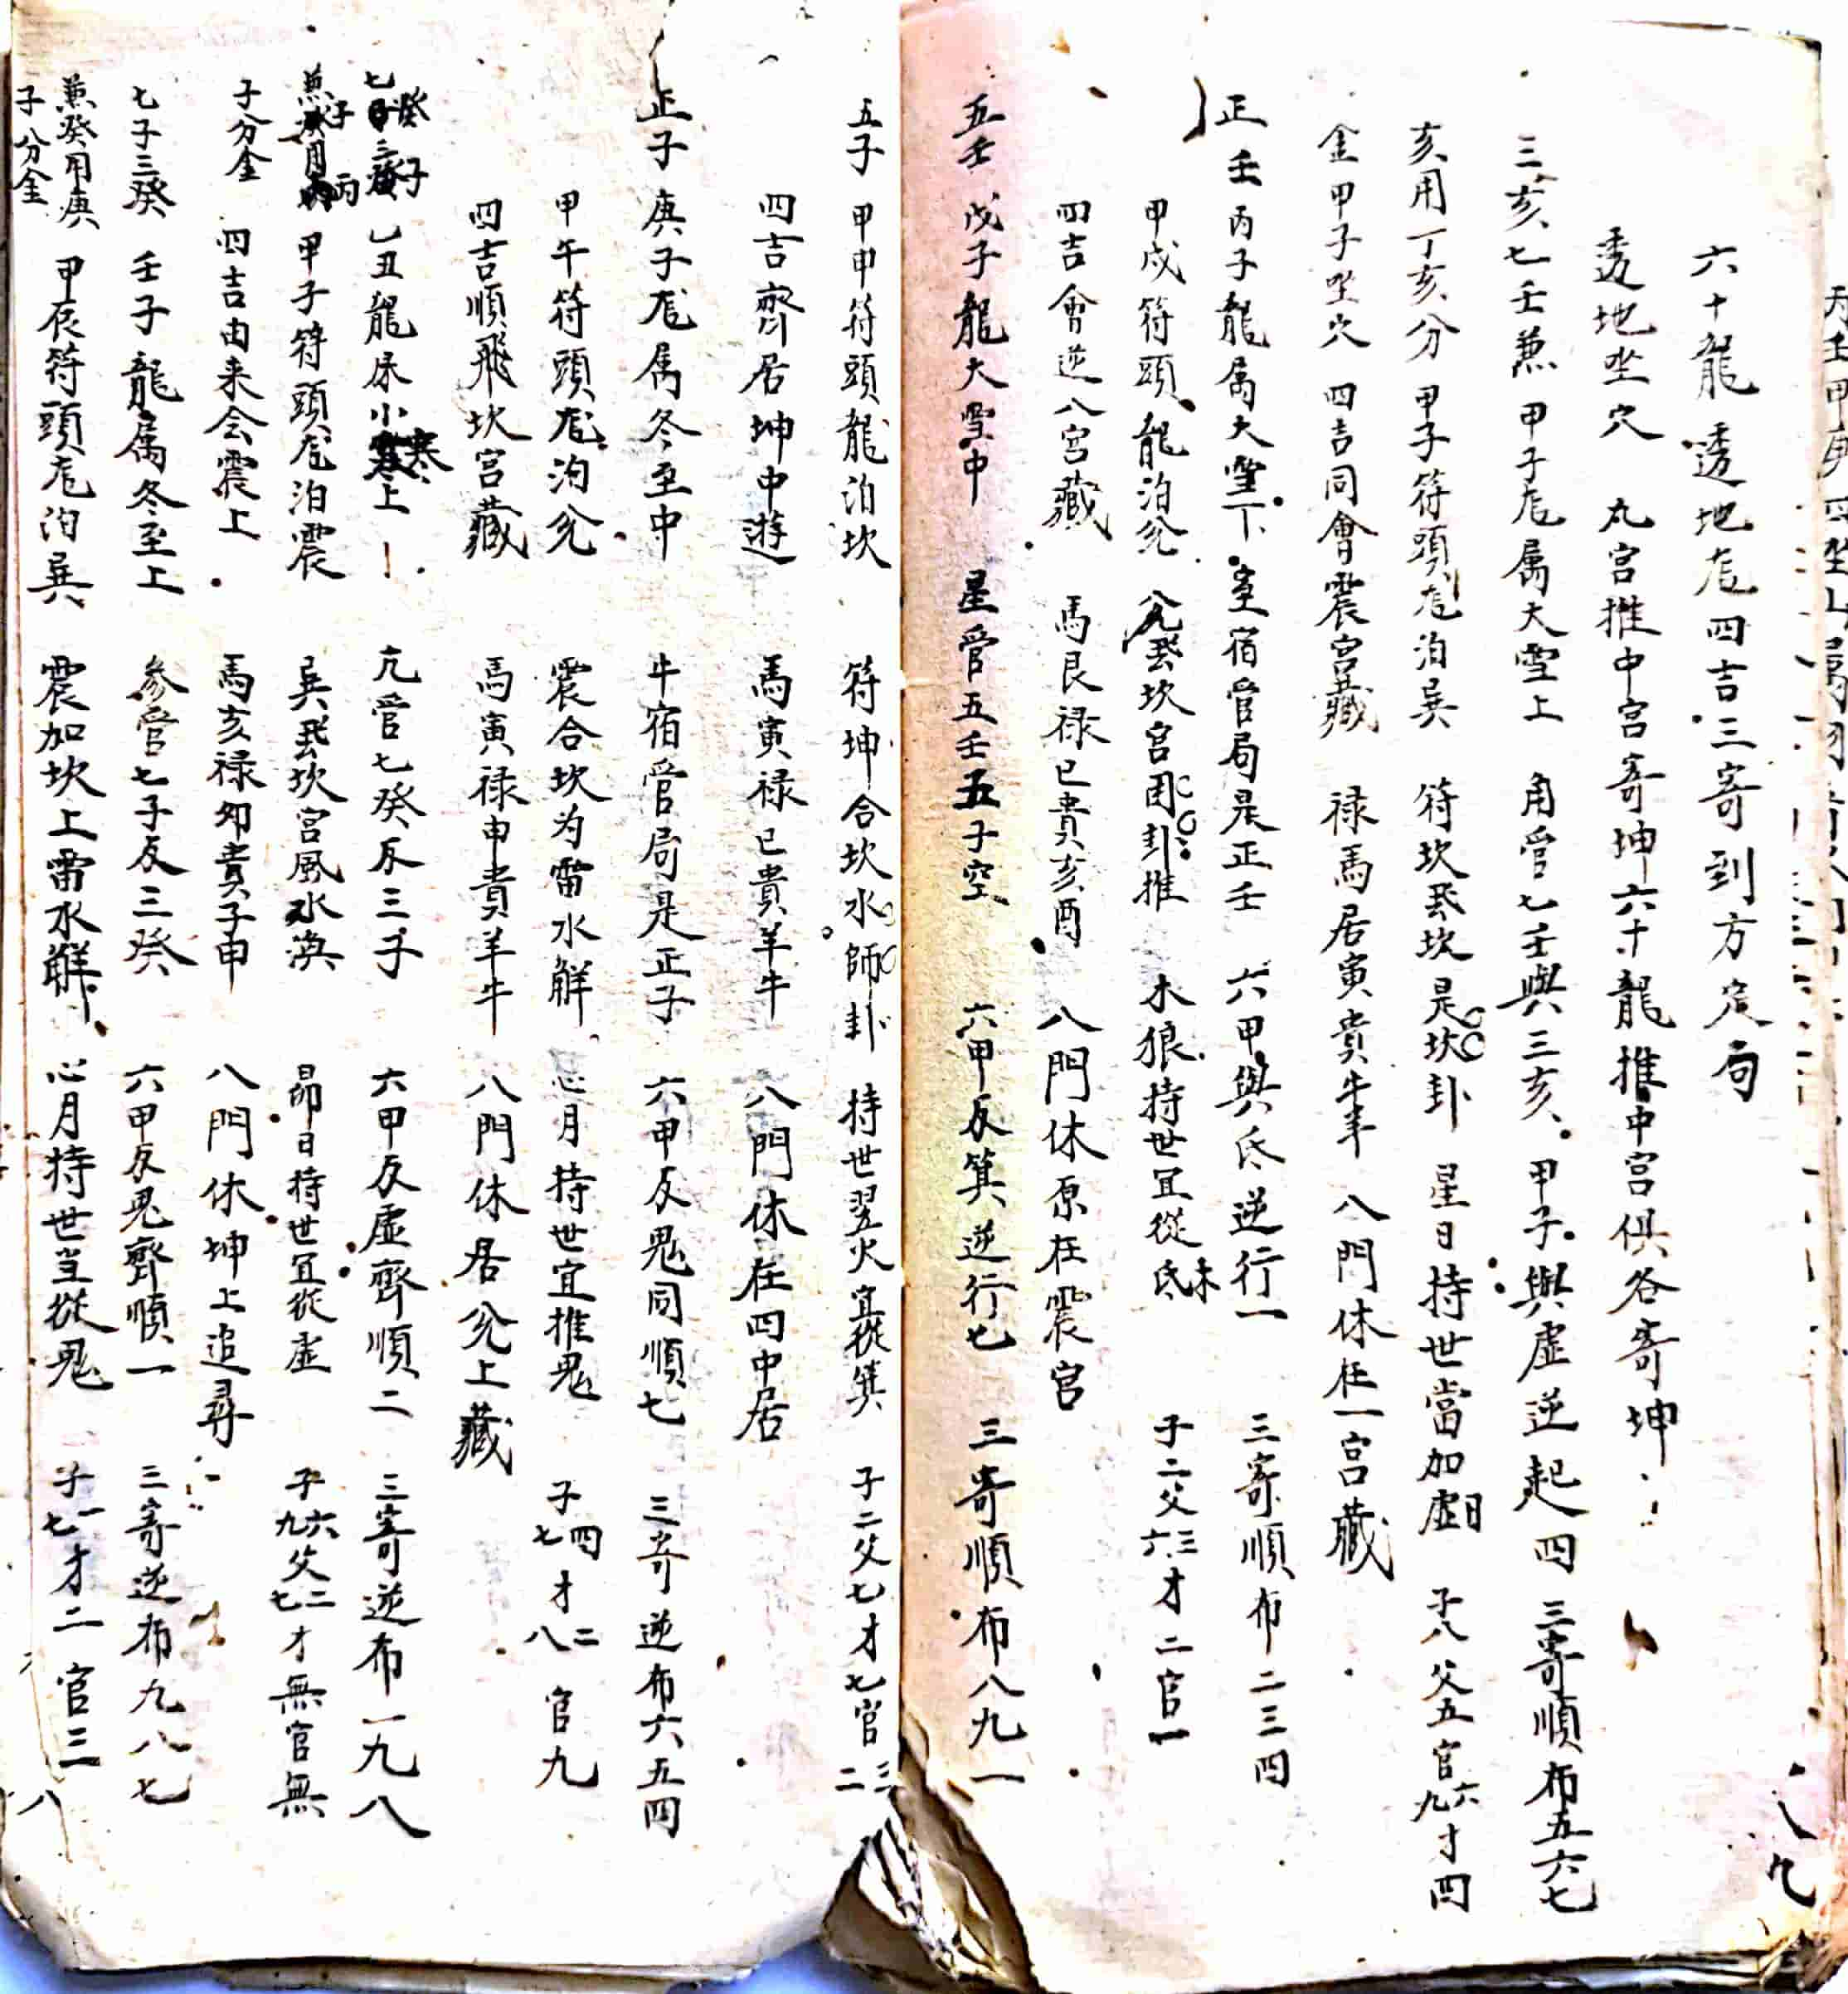 六十龍透地尨四吉三寄到方定局
透地坐穴 九宮推中宮寄坤六十龍推中宮俱各寄坤
三亥七壬兼 甲子尨属大雪上 角管七壬與三亥 甲子與虛逆起四 三寄順布五六七
亥用丁亥分 甲子符頭尨泊巽 符坎飛坎是坎卦 星日持世當加虛日 子八父五官六九才四
金甲子坐穴 四吉同會震宮藏 禄馬居寅貴牛羊 八門休在一宮藏
正壬 丙子龍属大雪下 室宿管局是正壬 六甲與氐逆行一 三寄順布二三四
甲戌符頭龍泊兌 兌飛坎宮困卦推 木狼持世宜從氐 子二父三六才二官一
四吉會逆八宮藏 馬艮禄巳貴亥酉 八門休原在震宮
五壬 戊子龍大雪中 星管五壬五子空 六甲反箕逆行七 三寄順布八九一
五子 甲申符頭龍泊坎 符坤合坎水師卦 持世翌火宜從箕 子二父七才七官三二
四吉齊居坤中遊 馬寅禄巳貴羊牛 八門休在四中居
正子 庚子尨属冬至中 牛宿管局是正子 六甲反鬼同順七 三寄逆布六五四
甲午符頭尨泊兌 震合坎为雷水解 心月持世宜推鬼 子四七才二八官九
四吉順飛坎宮藏 馬寅禄申貴羊牛 八門休居兌上藏
乙丑龍属小寒上 亢管七癸反三子 六甲反虛齊順二 三寄逆布一九八
甲子符頭尨泊震 巽飛坎宮風水渙 昴日持世宜從虛 子六九父二七才無官無
子分金 四吉由来会震上 馬亥禄夘貴子申 八門休坤上追尋
七子三癸 壬子龍属冬至上 參管七子反三癸 六甲反鬼齊順一 三寄逆布九八七
兼癸用庚子分金 甲辰符頭尨泊巽 震加坎上雷水解 心月持世当從鬼 子一七才二官三